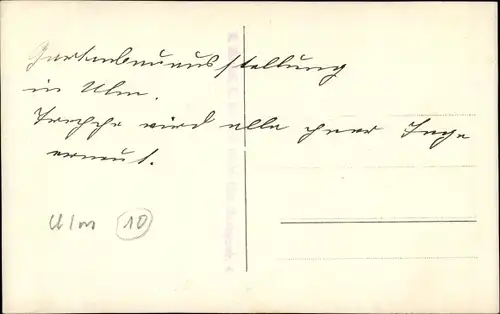 Gartenbauausstellung
in Ulm.
Treppe wird alle paar Tage
erneut.
Ulm 10